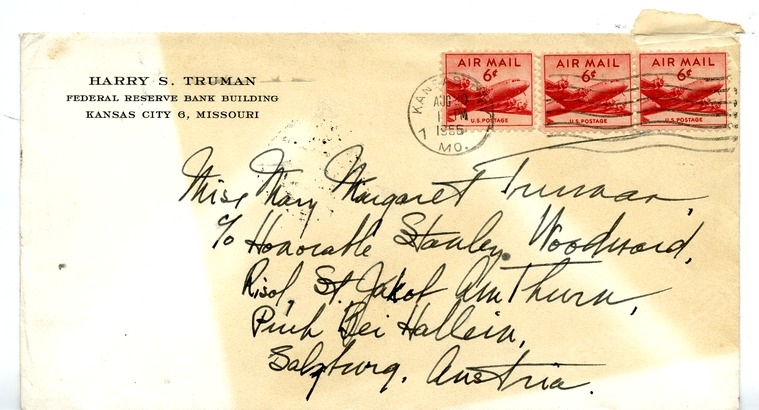 HARRY S. TRUMAN
FEDERAL RESERVE BANK BUILDING
KANSAS CITY 6, MISSOURI
AIR MAIL 6¢ U.S. POSTAGE
AIR MAIL 6¢ U.S. POSTAGE
AIR MAIL 6¢ U.S. POSTAGE
AUG
PM
7 1955
MO.
Miss Mary Margaret Truman,
c/o Honorable Stanley Woodward,
St. Jakob Am Thurn,
Bei Hallein,
Salzburg, Austria.